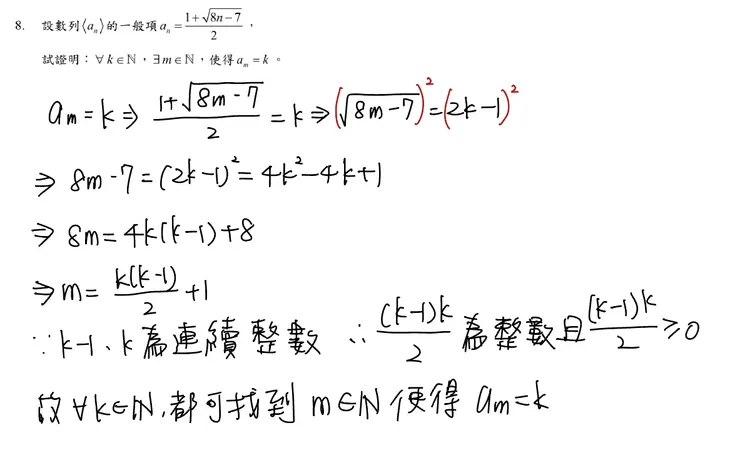 8. 設數列⟨aₙ⟩的一般項 aₙ = (1+√(8n−7))/2，
試證明：∀k∈ℕ，∃m∈ℕ，使得 aₘ = k。
aₘ = k ⇒ (1+√(8m−7))/2 = k ⇒ (√(8m−7))² = (2k−1)²
⇒ 8m−7 = (2k−1)² = 4k²−4k+1
⇒ 8m = 4k(k−1)+8
⇒ m = k(k−1)/2 + 1
∵ k−1、k為連續整數 ∴ (k−1)k/2 為整數且 (k−1)k/2 ≥ 0
故 ∀k∈ℕ, 都可找到 m∈ℕ 使得 aₘ = k